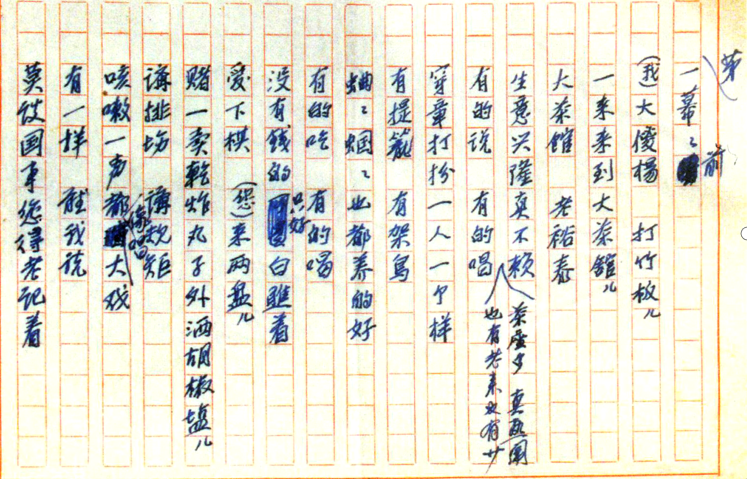 第一幕之前
(我)大傻楊 打竹板儿
一来来到大茶館儿
大茶館 老裕泰
生意兴隆真不赖
茶座多 真热闹
也有老来也有少
有的说 有的唱
穿章打扮一人一个样
有提籠 有架鸟
蛐々蝈々也都养的好
有的吃 有的喝
没有钱的只好白瞧着
爱下棋 (您)来两盘儿
赌一卖乾炸丸子外洒胡椒塩儿
讲排场 讲规矩
咳嗽一声都像唱大戏
有一样 听我说
莫谈国事您得老记着